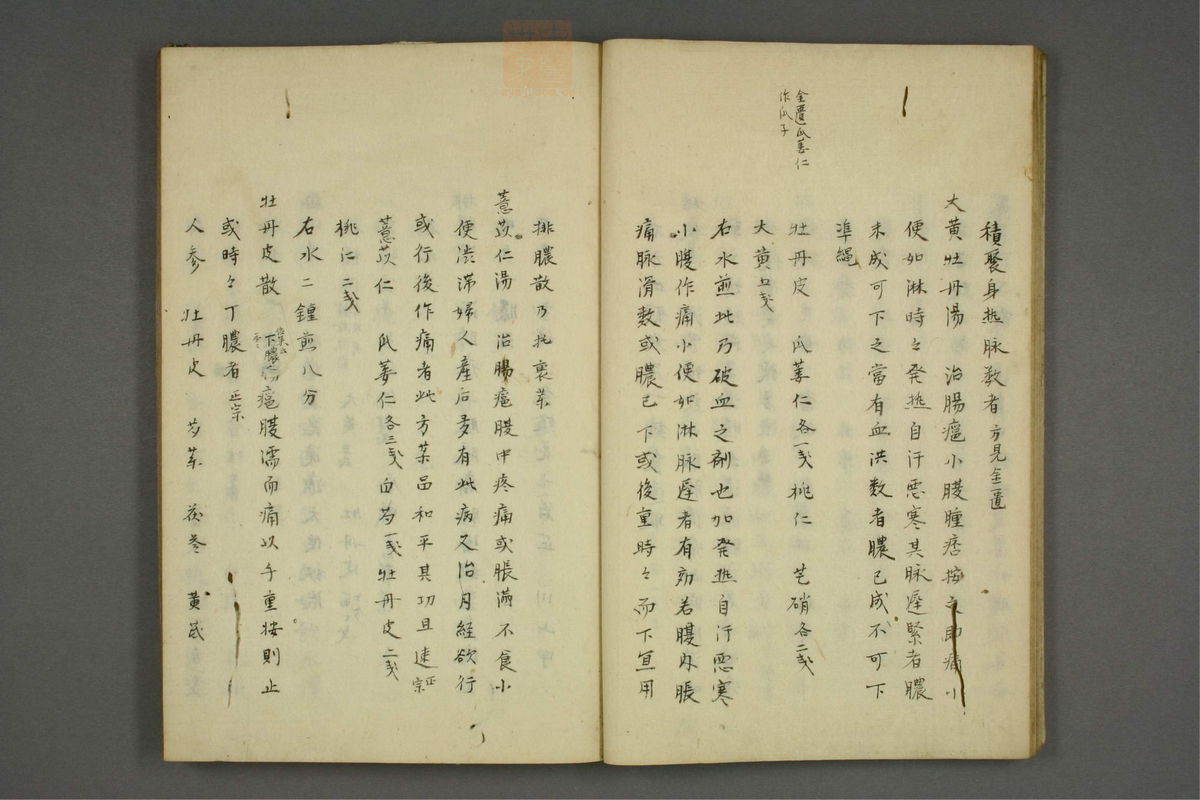 積聚身热脉数者方見金匱
大黄牡丹湯 治腸癰小腹腫痞按之即痛小
便如淋時々発热自汗悪寒其脉遅緊者膿
未成可下之當有血洪数者膿已成不可下
準縄
金匱瓜蔞仁
作瓜子
牡丹皮 瓜蔞仁各一戔 桃仁 芒硝各二戔
大黄五戔
右水煎此乃破血之剤也加発热自汗悪寒
小腹作痛小便如淋脉遅者有効若腹内脹
痛脉滑数或膿已下或後重時々而下宜用
排膿散乃托裏藥
薏苡仁湯 治腸癰腹中疼痛或脹滿不食小
便渋滞婦人産后多有此病又治月経欲行
或行後作痛者此方薬品和平其功且速正宗
薏苡仁 瓜蔞仁各三戔 白芍一戔 牡丹皮二戔
桃仁二戔
右水二鍾煎八分
牡丹皮散 腸癰腹濡而痛以手重按則止
或時々下膿者正宗
人参 牡丹皮 芍薬 茯苓 黄芪